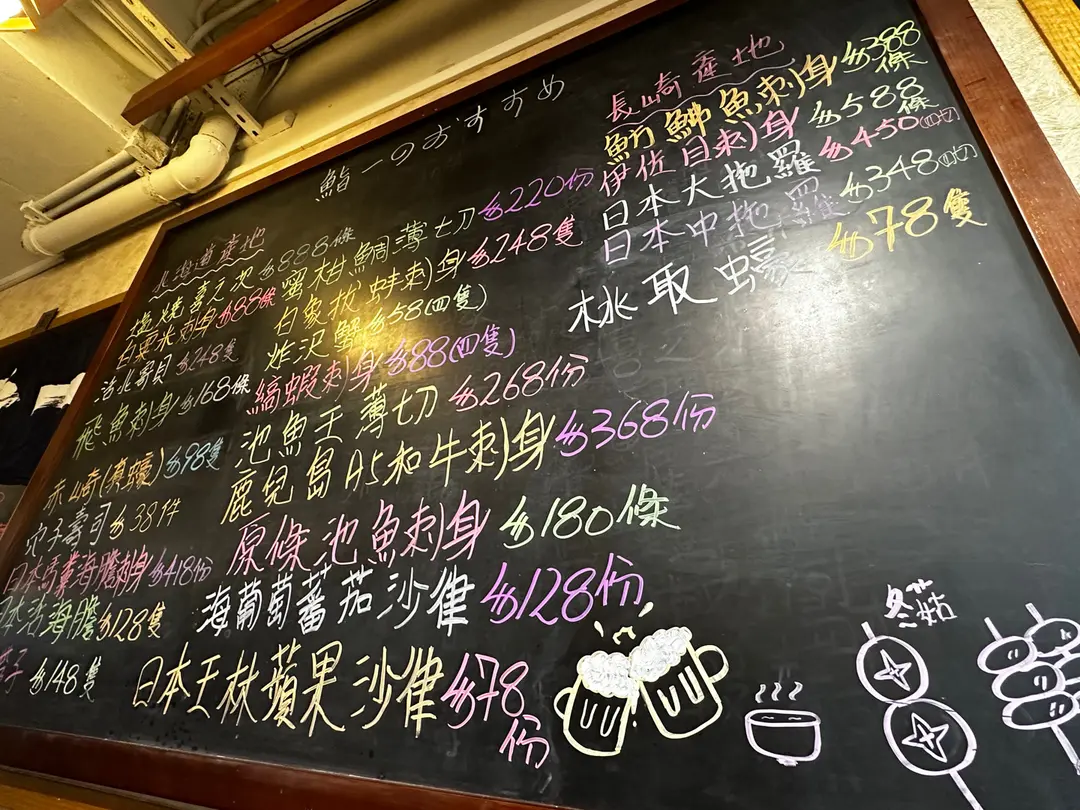 鮨一のおすすめ
北海道産地
塩燒喜之次 $888條
白粟米刺身 $88條
活北寄貝 $248隻
飛魚刺身 $168條
赤崎(真蠔) $98隻
穴子壽司 $38件
日本馬糞海膽刺身 $418份
日本活海膽 $128隻
子 $148隻
蜜柑鯛薄切 $220份
白象拔蚌刺身 $248隻
炸沢蟹 $58(四隻)
縞蝦刺身 $88(四隻)
池魚王薄切 $268份
鹿兒島A5和牛刺身 $368份
原條池魚刺身 $180條
海葡萄蕃茄沙律 $128份
日本王林蘋果沙律 $78份
長崎產地
魴鮄魚刺身 $388條
伊佐目刺身 $588條
日本大拖羅 $450(四切)
日本中拖羅 $348(四切)
桃取蠔 $78隻
冬菇